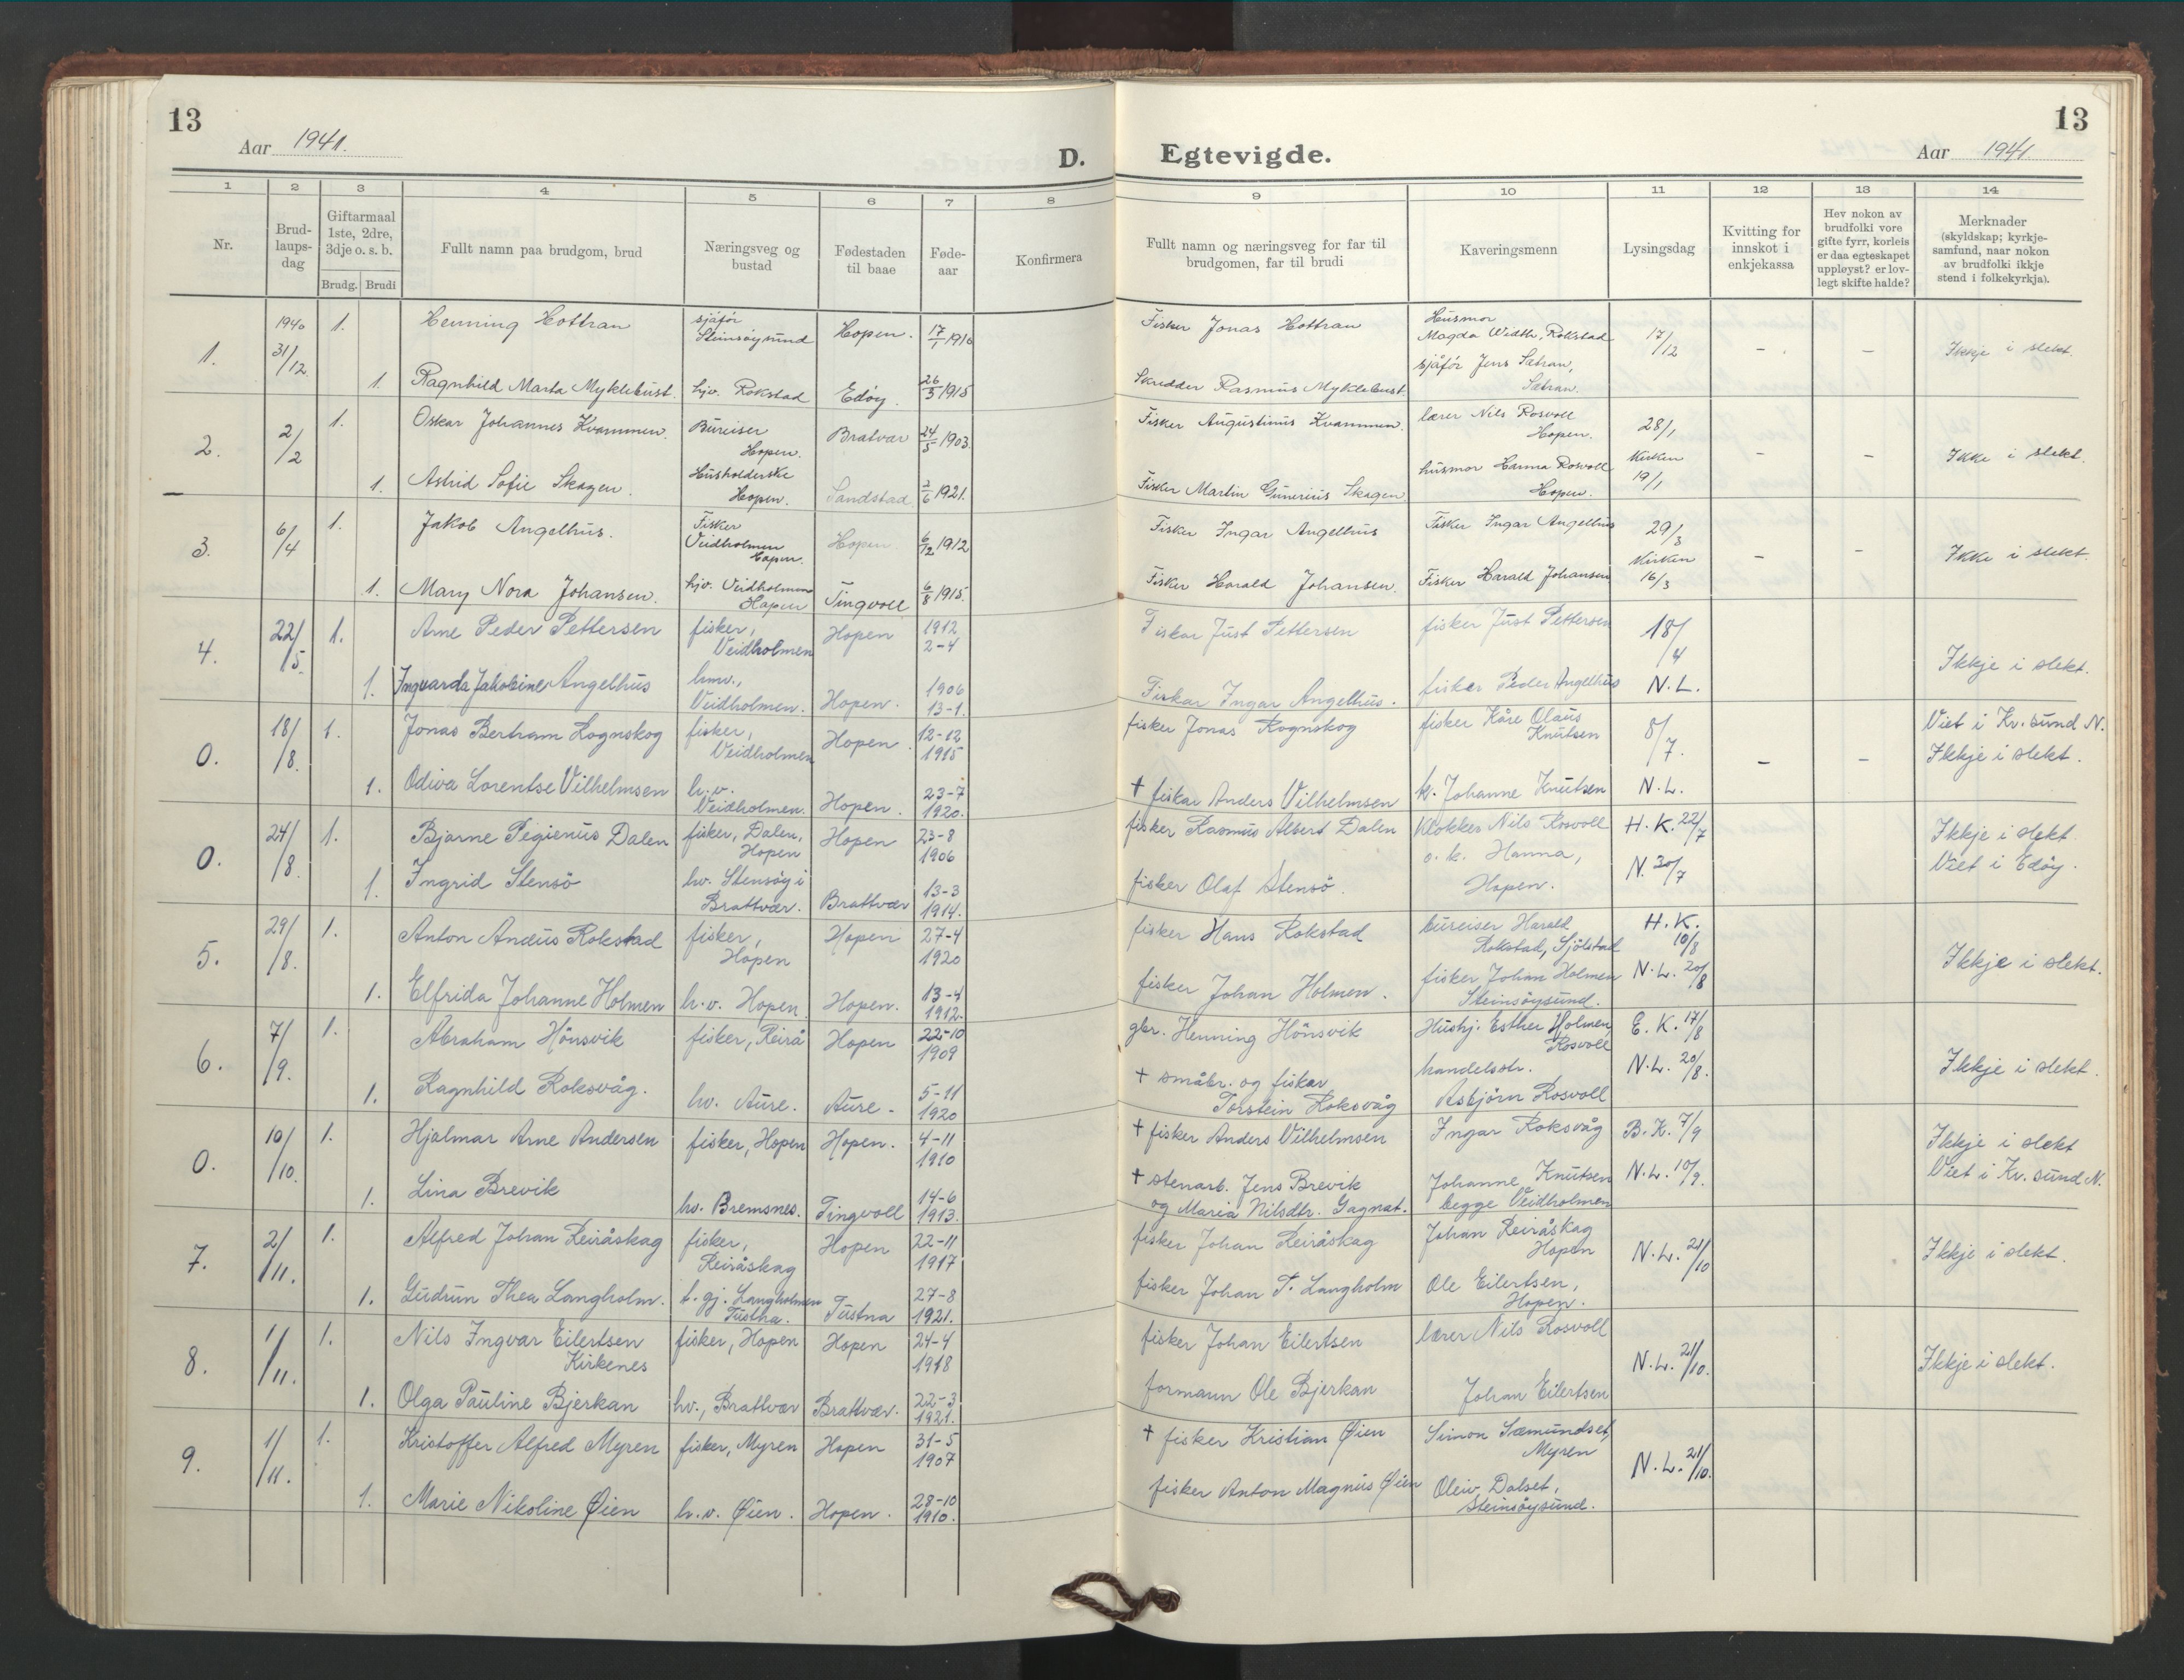 13
Aar 1941.
D.
1 2 3 4 5 6 7 8
Nr.
Brud-
laups-
dag
Giftarmaal
1ste, 2dre,
3dje o. s. b.
Brudg. Brudi
Fullt namn paa brudgom, brud
Næringsveg og
bustad
Fødestaden
til baae
Føde-
aar
Konfirmera
1. 1940 31/12. 1. Henning Hottran sjåfør Steinsöysund Hopen. 17/1 1916
1. Ragnhild Marta Myklebust. hjv. Rokstad Edöy. 26/3 1915
2. 2/2 1. Oskar Johannes Kvammen. Büreiser Hopen. Bratvær 24/5 1903.
1. Astrid Sofie Skagen. Husholderske Hopen. Sandstad 2/6 1921.
3. 6/4 1. Jakob Angelhus. Fisker Veidholmen Hopen. Hopen. 6/12 1912
1. Mary Nora Johansen. hjv. Veidholmen Hopen Tingvoll 6/8 1915.
4. 22/5. 1. Arne Peder Pettersen fisker, Veidholmen Hopen 1912 2-4
1. Ingvarda Jakobine Angelhus hmv., Veidholmen. Hopen. 1906 13-1.
0. 18/8. 1. Jonas Bertram Rognskog fisker, Veidholmen Hopen. 12-12 1915
1. Odiva Lorentse Vilhelmsen h.v. Veidholmen. Hopen. 23-7 1920.
0. 24/8. 1. Bjarne Pegienus Dalen fisker, Dalen, Hopen Hopen 23-8 1906
1. Ingrid Stensö hv. Stensöy i Brattvær. Brattvær 13-3 1914.
5. 29/8. 1. Anton Andüs Rokstad fisker, Hopen Hopen 27-4 1920
1. Elfrida Johanne Holmen h.v. Hopen Hopen. 13-4 1912.
6. 7/9. 1. Abraham Hönsvik fisker, Reirå Hopen 22-10 1909
1. Ragnhild Roksvåg. hv. Aure. Aure. 5-11 1920
0. 10/10. 1. Hjalmar Arne Andersen fisker, Hopen Hopen. 4-11 1910
1. Lina Brevik hv. Bremsnes. Tingvoll 14-6 1913.
7. 2/11. 1. Alfred Johan Reiråskag fisker, Reiråskag Hopen 22-11 1917
1. Gudrun Thea Langholm. t. gj. Langholmen Tustna. Tustna 27-8 1921.
8. 1/11. 1. Nils Ingvar Eilertsen Kirkenes fisker, Hopen Hopen 24-4 1918
1. Olga Pauline Bjerkan hv., Brattvær Brattvær. 22-3 1921.
9. 1/11. 1. Kristoffer Alfred Myren fisker, Myren Hopen 31-5 1907
1. Marie Nikoline Øien h.v. Øien. Hopen. 28-10 1910.
13
Egtevigde.
Aar 1941
9 10 11 12 13 14
Fullt namn og næringsveg for far til
brudgomen, far til brudi
Kaveringsmenn
Lysingsdag
Kvitting for
innskot i
enkjekassa
Hev nokon av
brudfolki vore
gifte fyrr, korleis
er daa egteskapet
uppløyst? er lov-
legt skifte halde?
Merknader
(skyldskap; kyrkje-
samfund, naar nokon
av brudfolki ikkje
stend i folkekyrkja).
Fisker Jonas Hottran Husmor Magda Width, Rokstad 17/12 - - Ikkje i slekt.
Skredder Rasmus Myklebust. sjåför Jens Sætran, Sætran.
Fisker Augustinus Kvammen. lærer Nils Rosvoll Hopen. 28/1 - - Ikke i slekt.
Fisker Martin Gunerius Skagen. husmor Hanna Rosvoll Hopen. Kirken 19/1
Fisker Ingar Angelhus Fisker Ingar Angelhus 29/3 - - Ikke i slekt
Fisker Harald Johansen. Fisker Harald Johansen Kirken 16/3
Fiskar Just Pettersen fisker Just Pettersen 18/4 Ikkje i slekt.
Fiskar Ingar Angelhus. fisker Peder Angelhus N.L.
fisker Jonas Rognskog fisker Kåre Olaus Knutsen 8/7. - - Viet i Kr.sund N. Ikkje i slekt.
† fiskar Anders Vilhelmsen k. Johanne Knutsen N.L.
fisker Rasmus Albert Dalen Klokker Nils Rosvoll H.K. 22/7 Ikkje i slekt.
fisker Olaf Stensö. o. k. Hanna, Hopen. N. 30/7 Viet i Edöy.
fisker Hans Rokstad büreiser Harald Rokstad, Sjölstad H.K. 10/8 Ikkje i slekt.
fisker Johan Holmen. fisker Johan Holmen Steinsöysund. N.L. 20/8
gbr. Henning Hönsvik Hushj. Esther Holmen, Rosvoll E.K. 17/8 Ikkje i slekt.
† småbr. og fiskar Torstein Roksvåg handelsstr. Asbjörn Rosvoll N.L. 20/8.
† fisker Anders Vilhelmsen Ingar Roksvåg B.K. 7/9 Ikkje i slekt
† stenarb. Jens Brevik og Maria Nilsdtr. Gagnat. Johanne Knutsen begge Veidholmen N.L. 10/9. Viet i Kr.sund N.
fisker Johan Reiråskag Johan Reiråskag Hopen N.L. 21/10 Ikkje i slekt.
fisker Johan T. Langholm Ole Eilertsen, Hopen.
fisker Johan Eilertsen lærer Nils Rosvoll N.L. 21/10. Ikkje i slekt.
formann Ole Bjerkan Johan Eilertsen
† fisker Kristian Øien Simon Sæmundset, Myren N.L. 21/10.
fisker Anton Magnus Øien Oleiv Dalset, Steinsöysund.